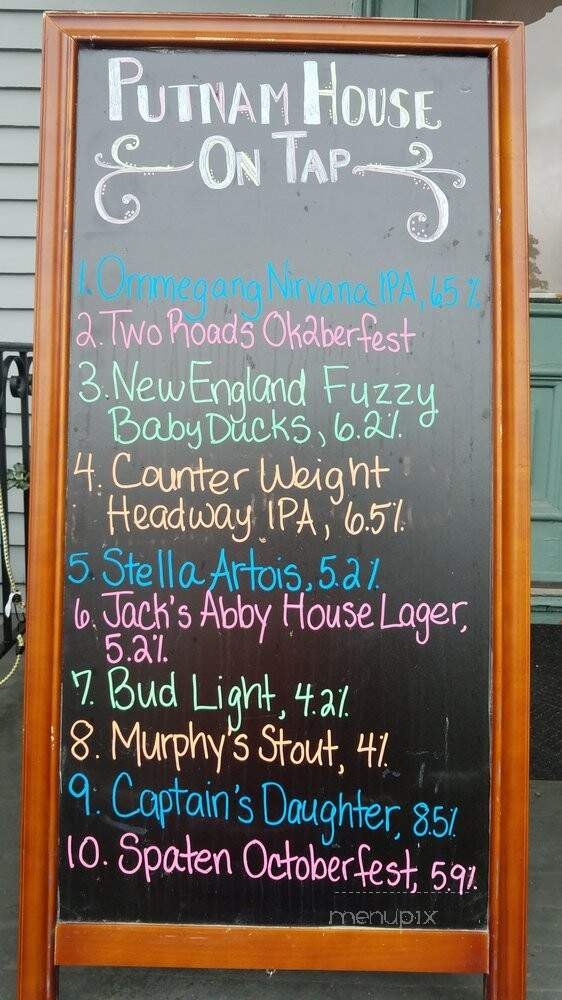 PUTNAM HOUSE
ON TAP
1. Ommegang Nirvana IPA, 6.5%
2. Two Roads Ok2berfest
3. New England Fuzzy
Baby Ducks, 6.2%
4. Counter Weight
Headway IPA, 6.5%
5. Stella Artois, 5.2%
6. Jack's Abby House Lager,
5.2%
7. Bud Light, 4.2%
8. Murphy's Stout, 4%
9. Captain's Daughter, 8.5%
10. Spaten Octoberfest, 5.9%
menupix